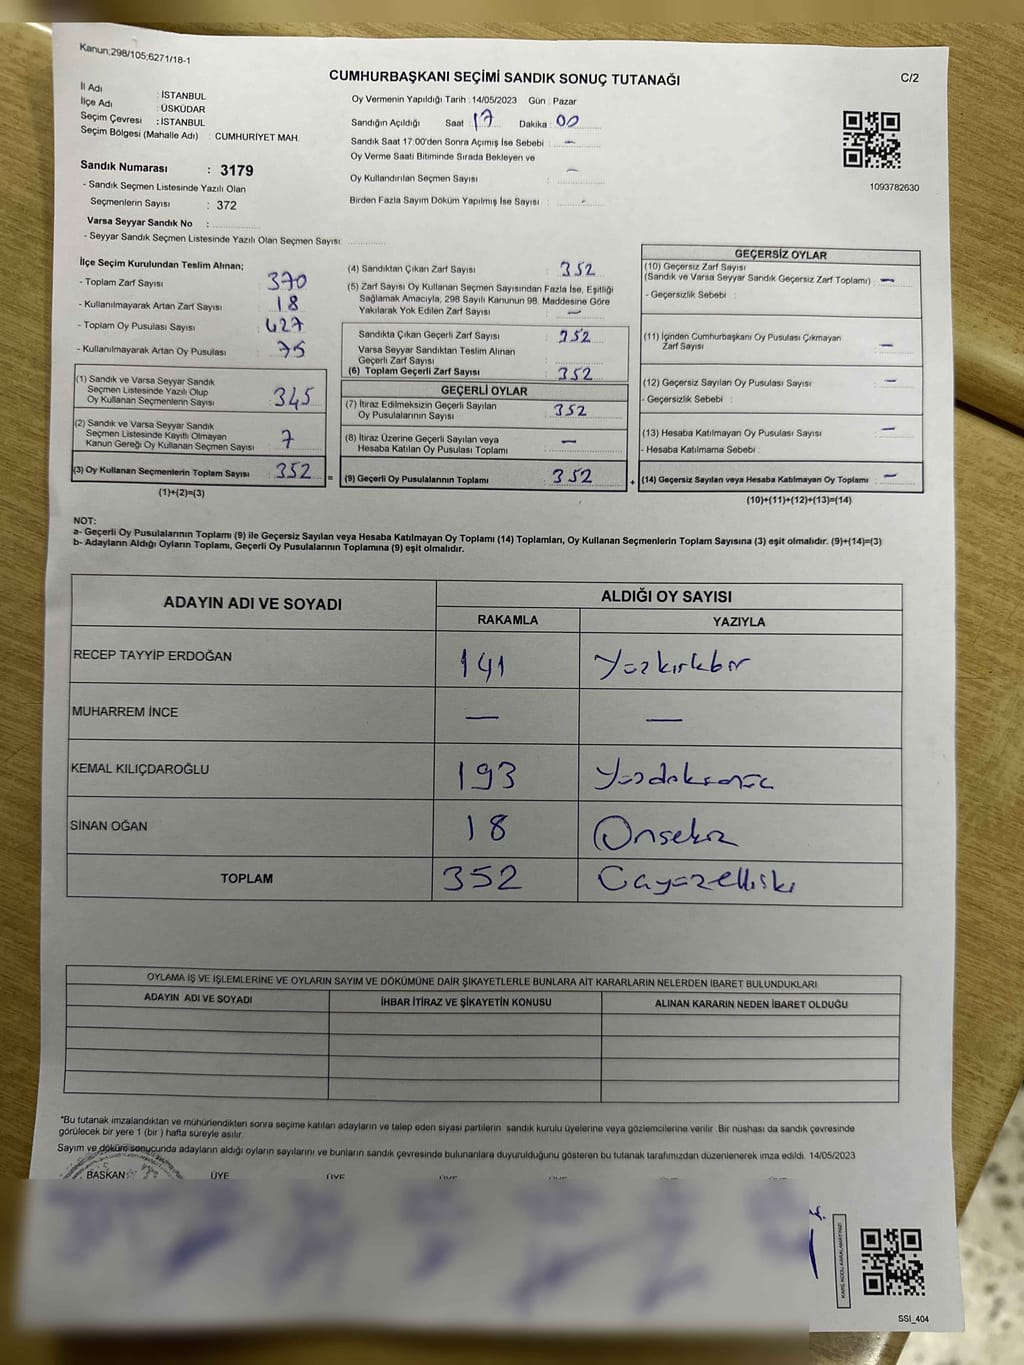 Kanun;298/105;6271/18-1
CUMHURBAŞKANI SEÇİMİ SANDIK SONUÇ TUTANAĞI
C/2
İl Adı : İSTANBUL
İlçe Adı : ÜSKÜDAR
Seçim Çevresi : İSTANBUL
Seçim Bölgesi (Mahalle Adı) : CUMHURİYET MAH.
Sandık Numarası : 3179
- Sandık Seçmen Listesinde Yazılı Olan
Seçmenlerin Sayısı : 372
Varsa Seyyar Sandık No :
- Seyyar Sandık Seçmen Listesinde Yazılı Olan Seçmen Sayısı:
Oy Vermenin Yapıldığı Tarih : 14/05/2023 Gün : Pazar
Sandığın Açıldığı Saat : 17 Dakika : 00
Sandık Saat 17:00'den Sonra Açımış İse Sebebi : —
Oy Verme Saati Bitiminde Sırada Bekleyen ve
Oy Kullandırılan Seçmen Sayısı : —
Birden Fazla Sayım Döküm Yapılmış İse Sayısı : -
1093782630
İlçe Seçim Kurulundan Teslim Alınan;
- Toplam Zarf Sayısı : 370
- Kullanılmayarak Artan Zarf Sayısı : 18
- Toplam Oy Pusulası Sayısı : 427
- Kullanılmayarak Artan Oy Pusulası : 75
(1) Sandık ve Varsa Seyyar Sandık
Seçmen Listesinde Yazılı Olup
Oy Kullanan Seçmenlerin Sayısı : 345
(2) Sandık ve Varsa Seyyar Sandık
Seçmen Listesinde Kayıtlı Olmayan
Kanun Gereği Oy Kullanan Seçmen Sayısı : 7
(3) Oy Kullanan Seçmenlerin Toplam Sayısı : 352 =
(1)+(2)=(3)
(4) Sandıktan Çıkan Zarf Sayısı : 352
(5) Zarf Sayısı Oy Kullanan Seçmen Sayısından Fazla İse, Eşitliği
Sağlamak Amacıyla, 298 Sayılı Kanunun 98. Maddesine Göre
Yakılarak Yok Edilen Zarf Sayısı : —
Sandıkta Çıkan Geçerli Zarf Sayısı : 352
Varsa Seyyar Sandıktan Teslim Alınan
Geçerli Zarf Sayısı :
(6) Toplam Geçerli Zarf Sayısı : 352
GEÇERLİ OYLAR
(7) İtiraz Edilmeksizin Geçerli Sayılan
Oy Pusulalarının Sayısı : 352
(8) İtiraz Üzerine Geçerli Sayılan veya
Hesaba Katılan Oy Pusulası Toplamı : —
(9) Geçerli Oy Pusulalarının Toplamı : 352 +
GEÇERSİZ OYLAR
(10) Geçersiz Zarf Sayısı
(Sandık ve Varsa Seyyar Sandık Geçersiz Zarf Toplamı) : —
- Geçersizlik Sebebi :
(11) İçinden Cumhurbaşkanı Oy Pusulası Çıkmayan
Zarf Sayısı : —
(12) Geçersiz Sayılan Oy Pusulası Sayısı : —
- Geçersizlik Sebebi :
(13) Hesaba Katılmayan Oy Pusulası Sayısı : —
- Hesaba Katılmama Sebebi :
(14) Geçersiz Sayılan veya Hesaba Katılmayan Oy Toplamı : —
(10)+(11)+(12)+(13)=(14)
NOT:
a- Geçerli Oy Pusulalarının Toplamı (9) ile Geçersiz Sayılan veya Hesaba Katılmayan Oy Toplamı (14) Toplamları, Oy Kullanan Seçmenlerin Toplam Sayısına (3) eşit olmalıdır. (9)+(14)=(3)
b- Adayların Aldığı Oyların Toplamı, Geçerli Oy Pusulalarının Toplamına (9) eşit olmalıdır.
ADAYIN ADI VE SOYADI
ALDIĞI OY SAYISI
RAKAMLA YAZIYLA
RECEP TAYYİP ERDOĞAN 141 Yüzkırkbir
MUHARREM İNCE — —
KEMAL KILIÇDAROĞLU 193 Yüzdoksanüç
SİNAN OĞAN 18 Onsekiz
TOPLAM 352 Üçyüzelliiki
OYLAMA İŞ VE İŞLEMLERİNE VE OYLARIN SAYIM VE DÖKÜMÜNE DAİR ŞİKAYETLERLE BUNLARA AİT KARARLARIN NELERDEN İBARET BULUNDUKLARI
ADAYIN ADI VE SOYADI İHBAR İTİRAZ VE ŞİKAYETİN KONUSU ALINAN KARARIN NEDEN İBARET OLDUĞU
*Bu tutanak imzalandıktan ve mühürlendikten sonra seçime katılan adayların ve talep eden siyasi partilerin sandık kurulu üyelerine veya gözlemcilerine verilir. Bir nüshası da sandık çevresinde
görülecek bir yere 1 (bir ) hafta süreyle asılır.
Sayım ve döküm sonucunda adayların aldığı oyların sayılarını ve bunların sandık çevresinde bulunanlara duyurulduğunu gösteren bu tutanak tarafımızdan düzenlenerek imza edildi. 14/05/2023
BAŞKAN ÜYE ÜYE ÜYE ÜYE
SSI_404